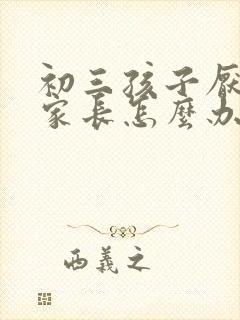 初三孩子厌
家长怎麼办
西義之